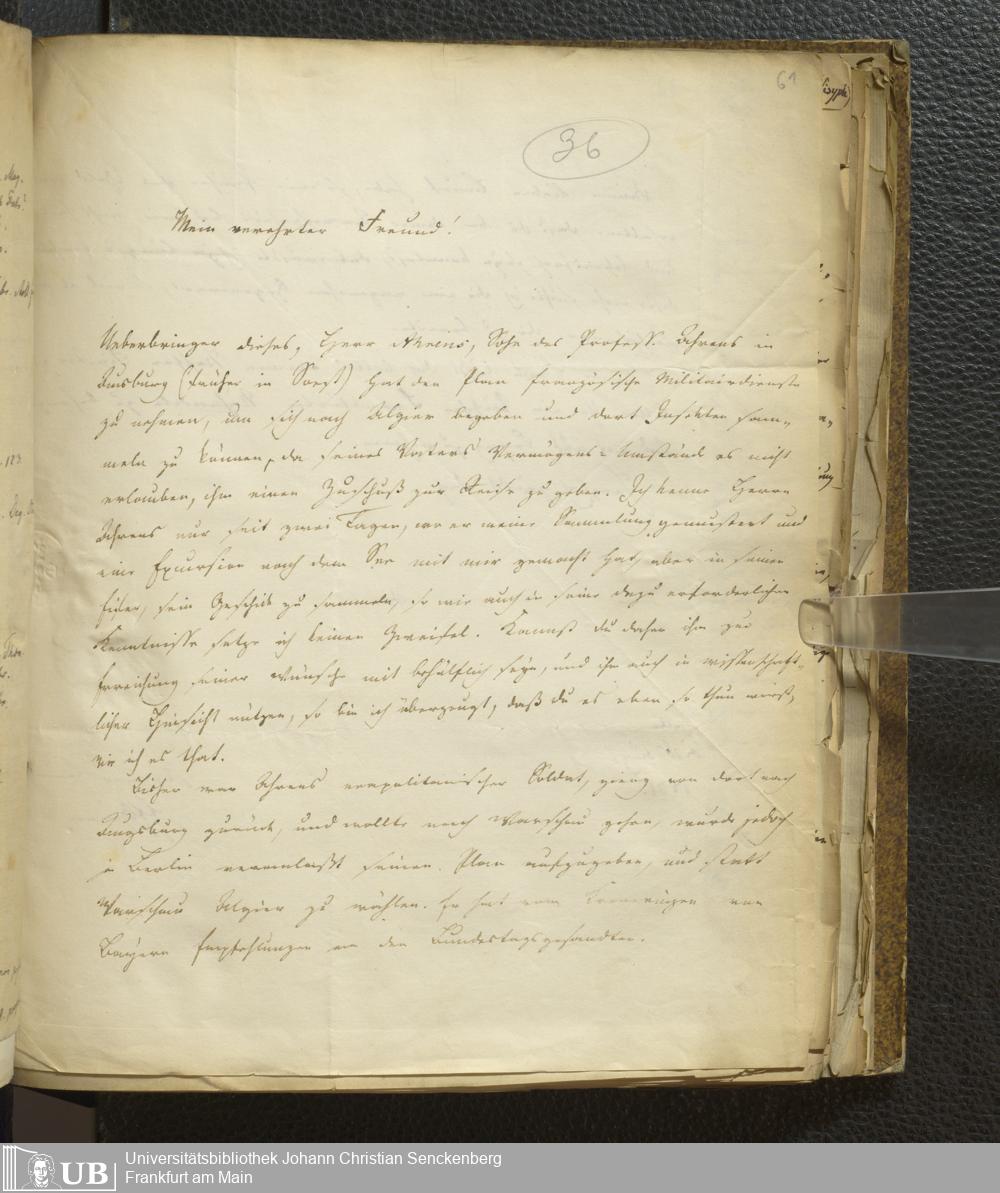 61
36
Mein verehrter Freund!
Ueberbringer dieses, Herr Ahrens, Sohn des Profess. Ahrens in
Augsburg (früher in Soest) hat den Plan französische Militairdienste
zu nehmen, um sich nach Algier begeben und dort Insekten sam-
meln zu können, da seines Vaters Vermögens-Umstände es nicht
erlauben, ihm einen Zuschuß zur Reise zu geben. Ich kenne Herrn
Ahrens nur seit zwei Tagen, wo er meine Sammlung gemustert und
eine Excursion nach dem See mit mir gemacht hat, aber in seinen
Eifer, sein Geschick zu sammeln, so wie auch in seine dazu erforderlichen
Kenntnisse setze ich keinen Zweifel. Kannst du daher ihm zur
Erreichung seiner Wünsche mit behülflich seyn, und ihn auch in wissenschaft-
licher Hinsicht nützen, so bin ich überzeugt, daß du es eben so thun wirst,
wie ich es that.
Bisher war Ahrens neapolitanischer Soldat, gieng von dort nach
Augsburg zurück, und wollte nach Warschau gehen, wurde jedoch
in Berlin veranlaßt seinen Plan aufzugeben, und statt
Warschau Algier zu wählen. Er hat vom Kronprinzen von
Bayern Empfehlungen an den Bundestagsgesandten.
UB
Universitätsbibliothek Johann Christian Senckenberg
Frankfurt am Main